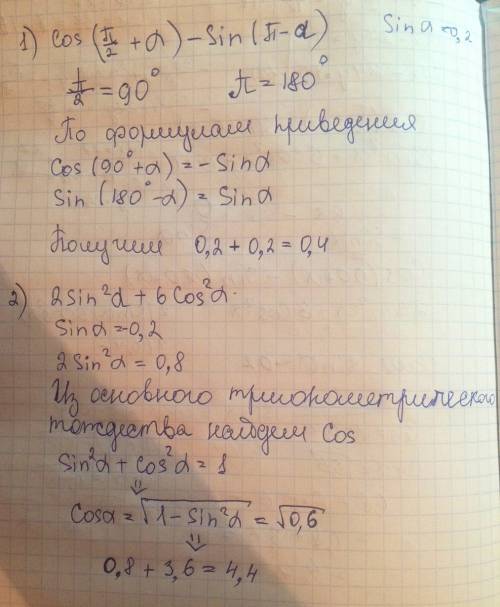 1) Cos (π/2 + α) - Sin (π - α) Sin α = -0,2
π/2 = 90° π = 180°
По формулам приведения
Cos (90° + α) = - Sin α
Sin (180° - α) = Sin α
Получим 0,2 + 0,2 = 0,4
2) 2 Sin²α + 6 Cos²α.
Sin α = -0,2
2 Sin²α = 0,8
Из основного тригонометрического
тождества найдем Cos
Sin²α + Cos²α = 1
⇓
Cos α = √(1 - Sin²α) = √0,6
⇓
0,8 + 3,6 = 4,4